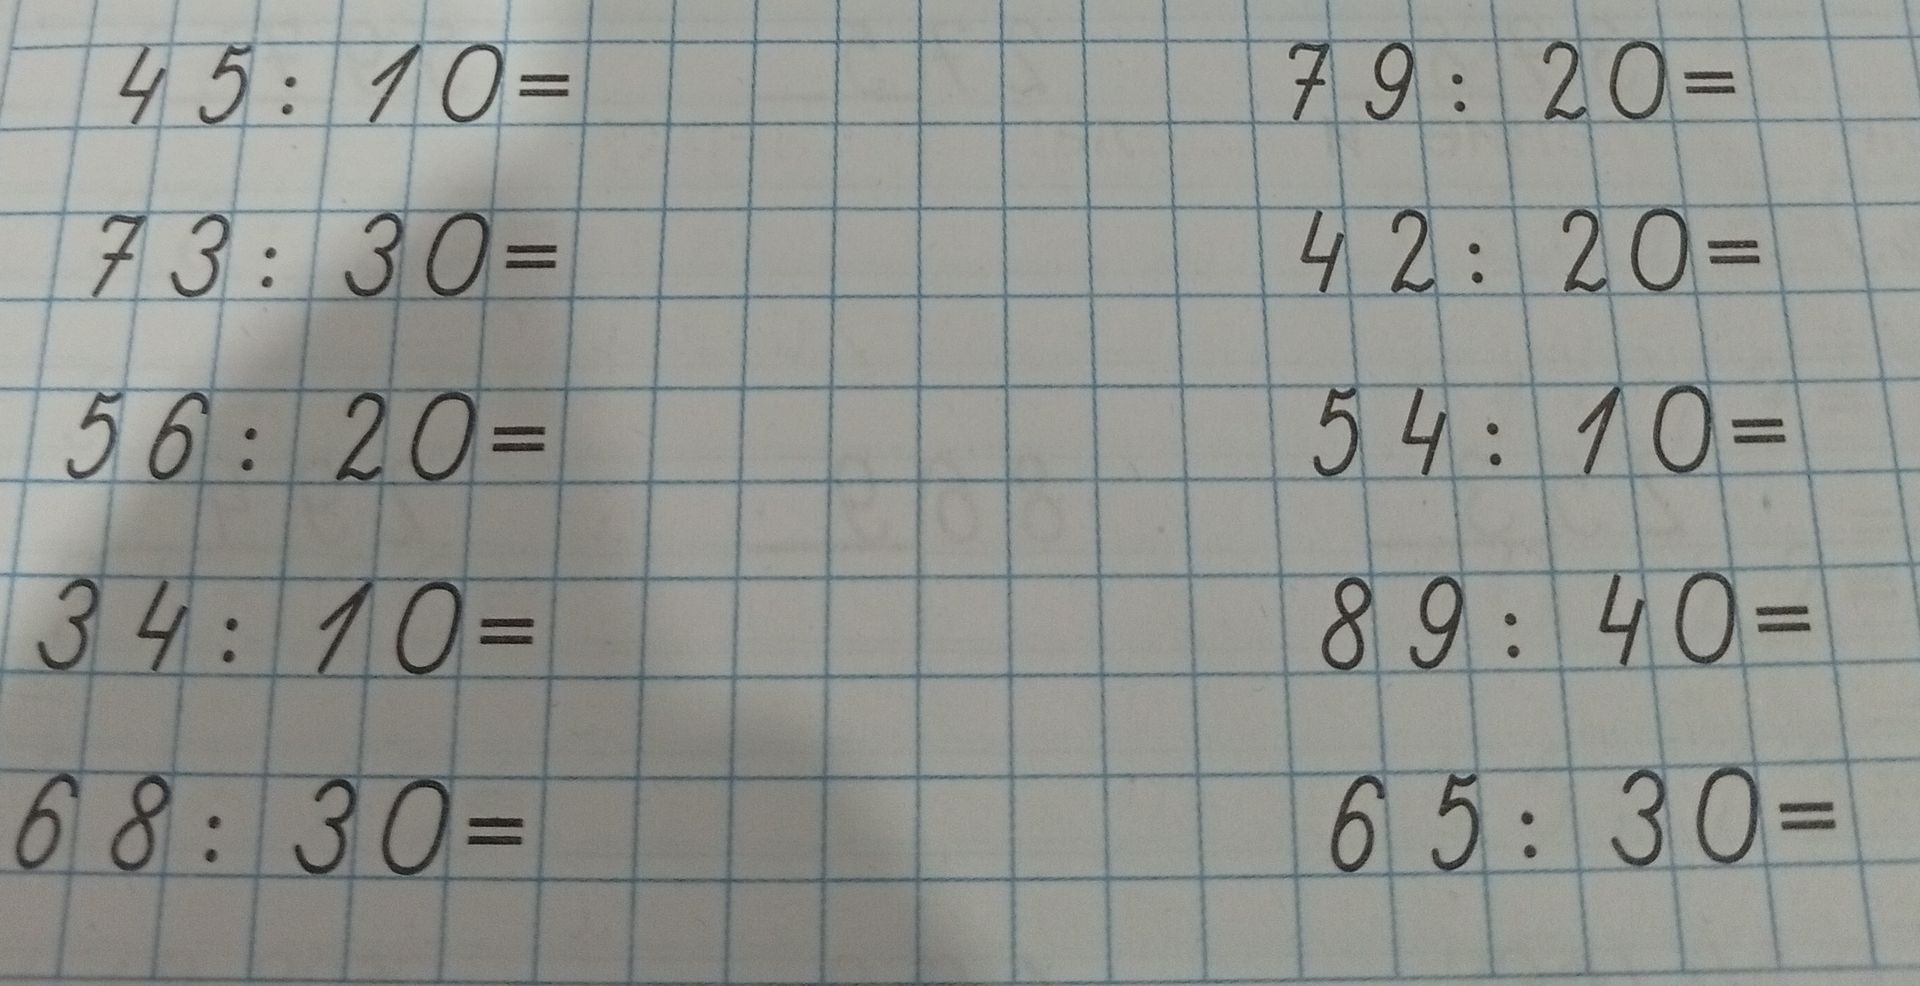 45 : 10 =
79 : 20 =
73 : 30 =
42 : 20 =
56 : 20 =
54 : 10 =
34 : 10 =
89 : 40 =
68 : 30 =
65 : 30 =